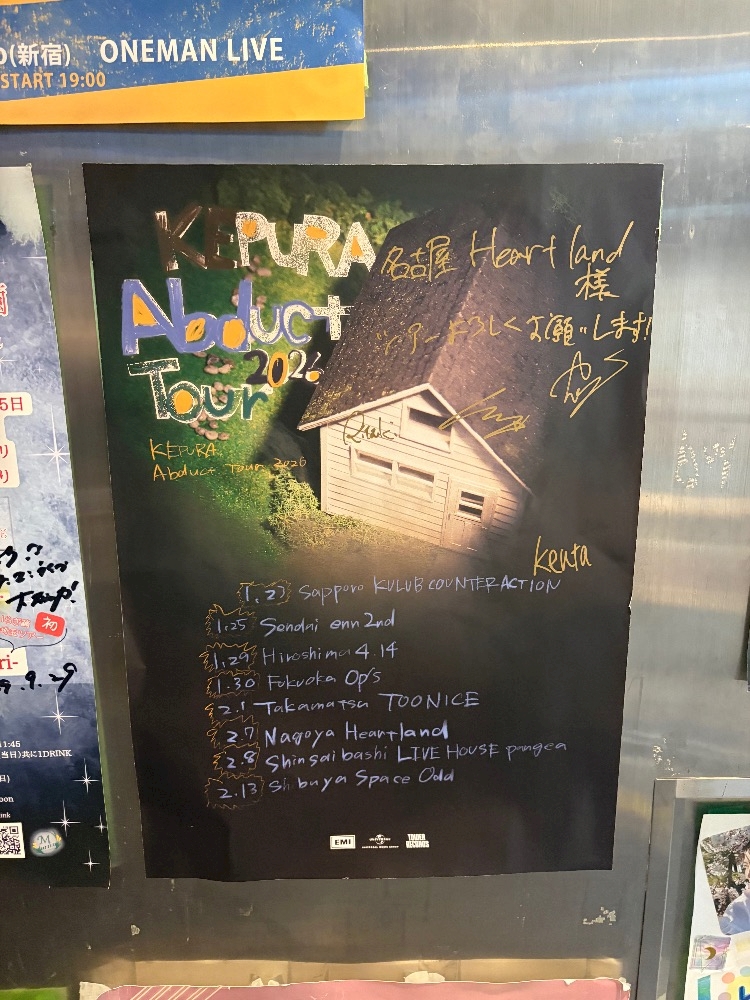 (新宿) ONEMAN LIVE
START 19:00
KEPURA
Abduct
Tour 2026
名古屋 Heartland
様
ツアーよろしくお願いします!
KEPURA
Abduct Tour 2026
kenta
Sapporo KULUB COUNTERACTION
1.25 Sendai enn 2nd
1.29 Hiroshima 4.14
1.30 Fukuoka Op's
2.1 Takamatsu TOONICE
2.7 Nagoya Heartland
2.8 Shinsaibashi LIVE HOUSE pangea
2.13 Shibuya Space Odd
EMI
UNIVERSAL MUSIC GROUP
初
9.29
11:45
当日)共に1DRINK